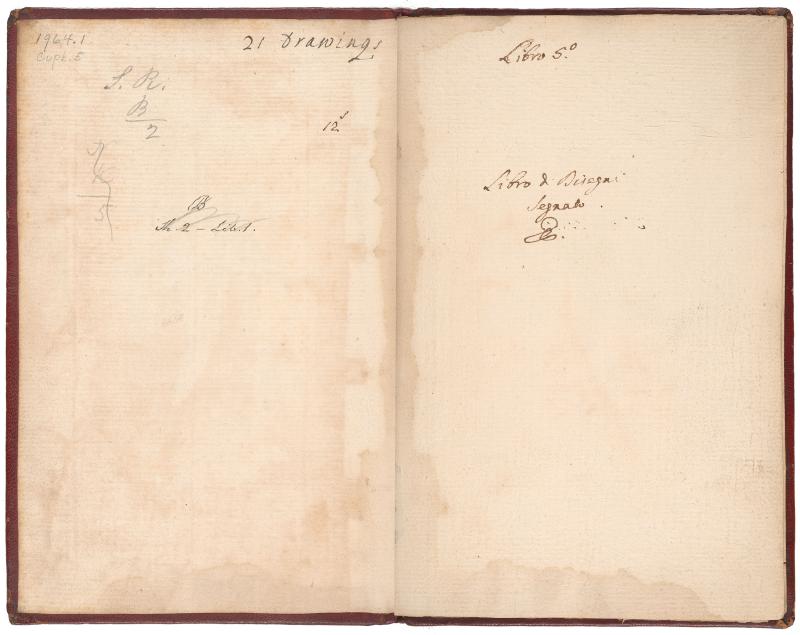 1964.1
Cupb. 5
21 Drawings
S. R.
B
2
12s
B
Sh. 2 – Lib. 1.
Libro 5.o
Libro di Disegni
Segnato